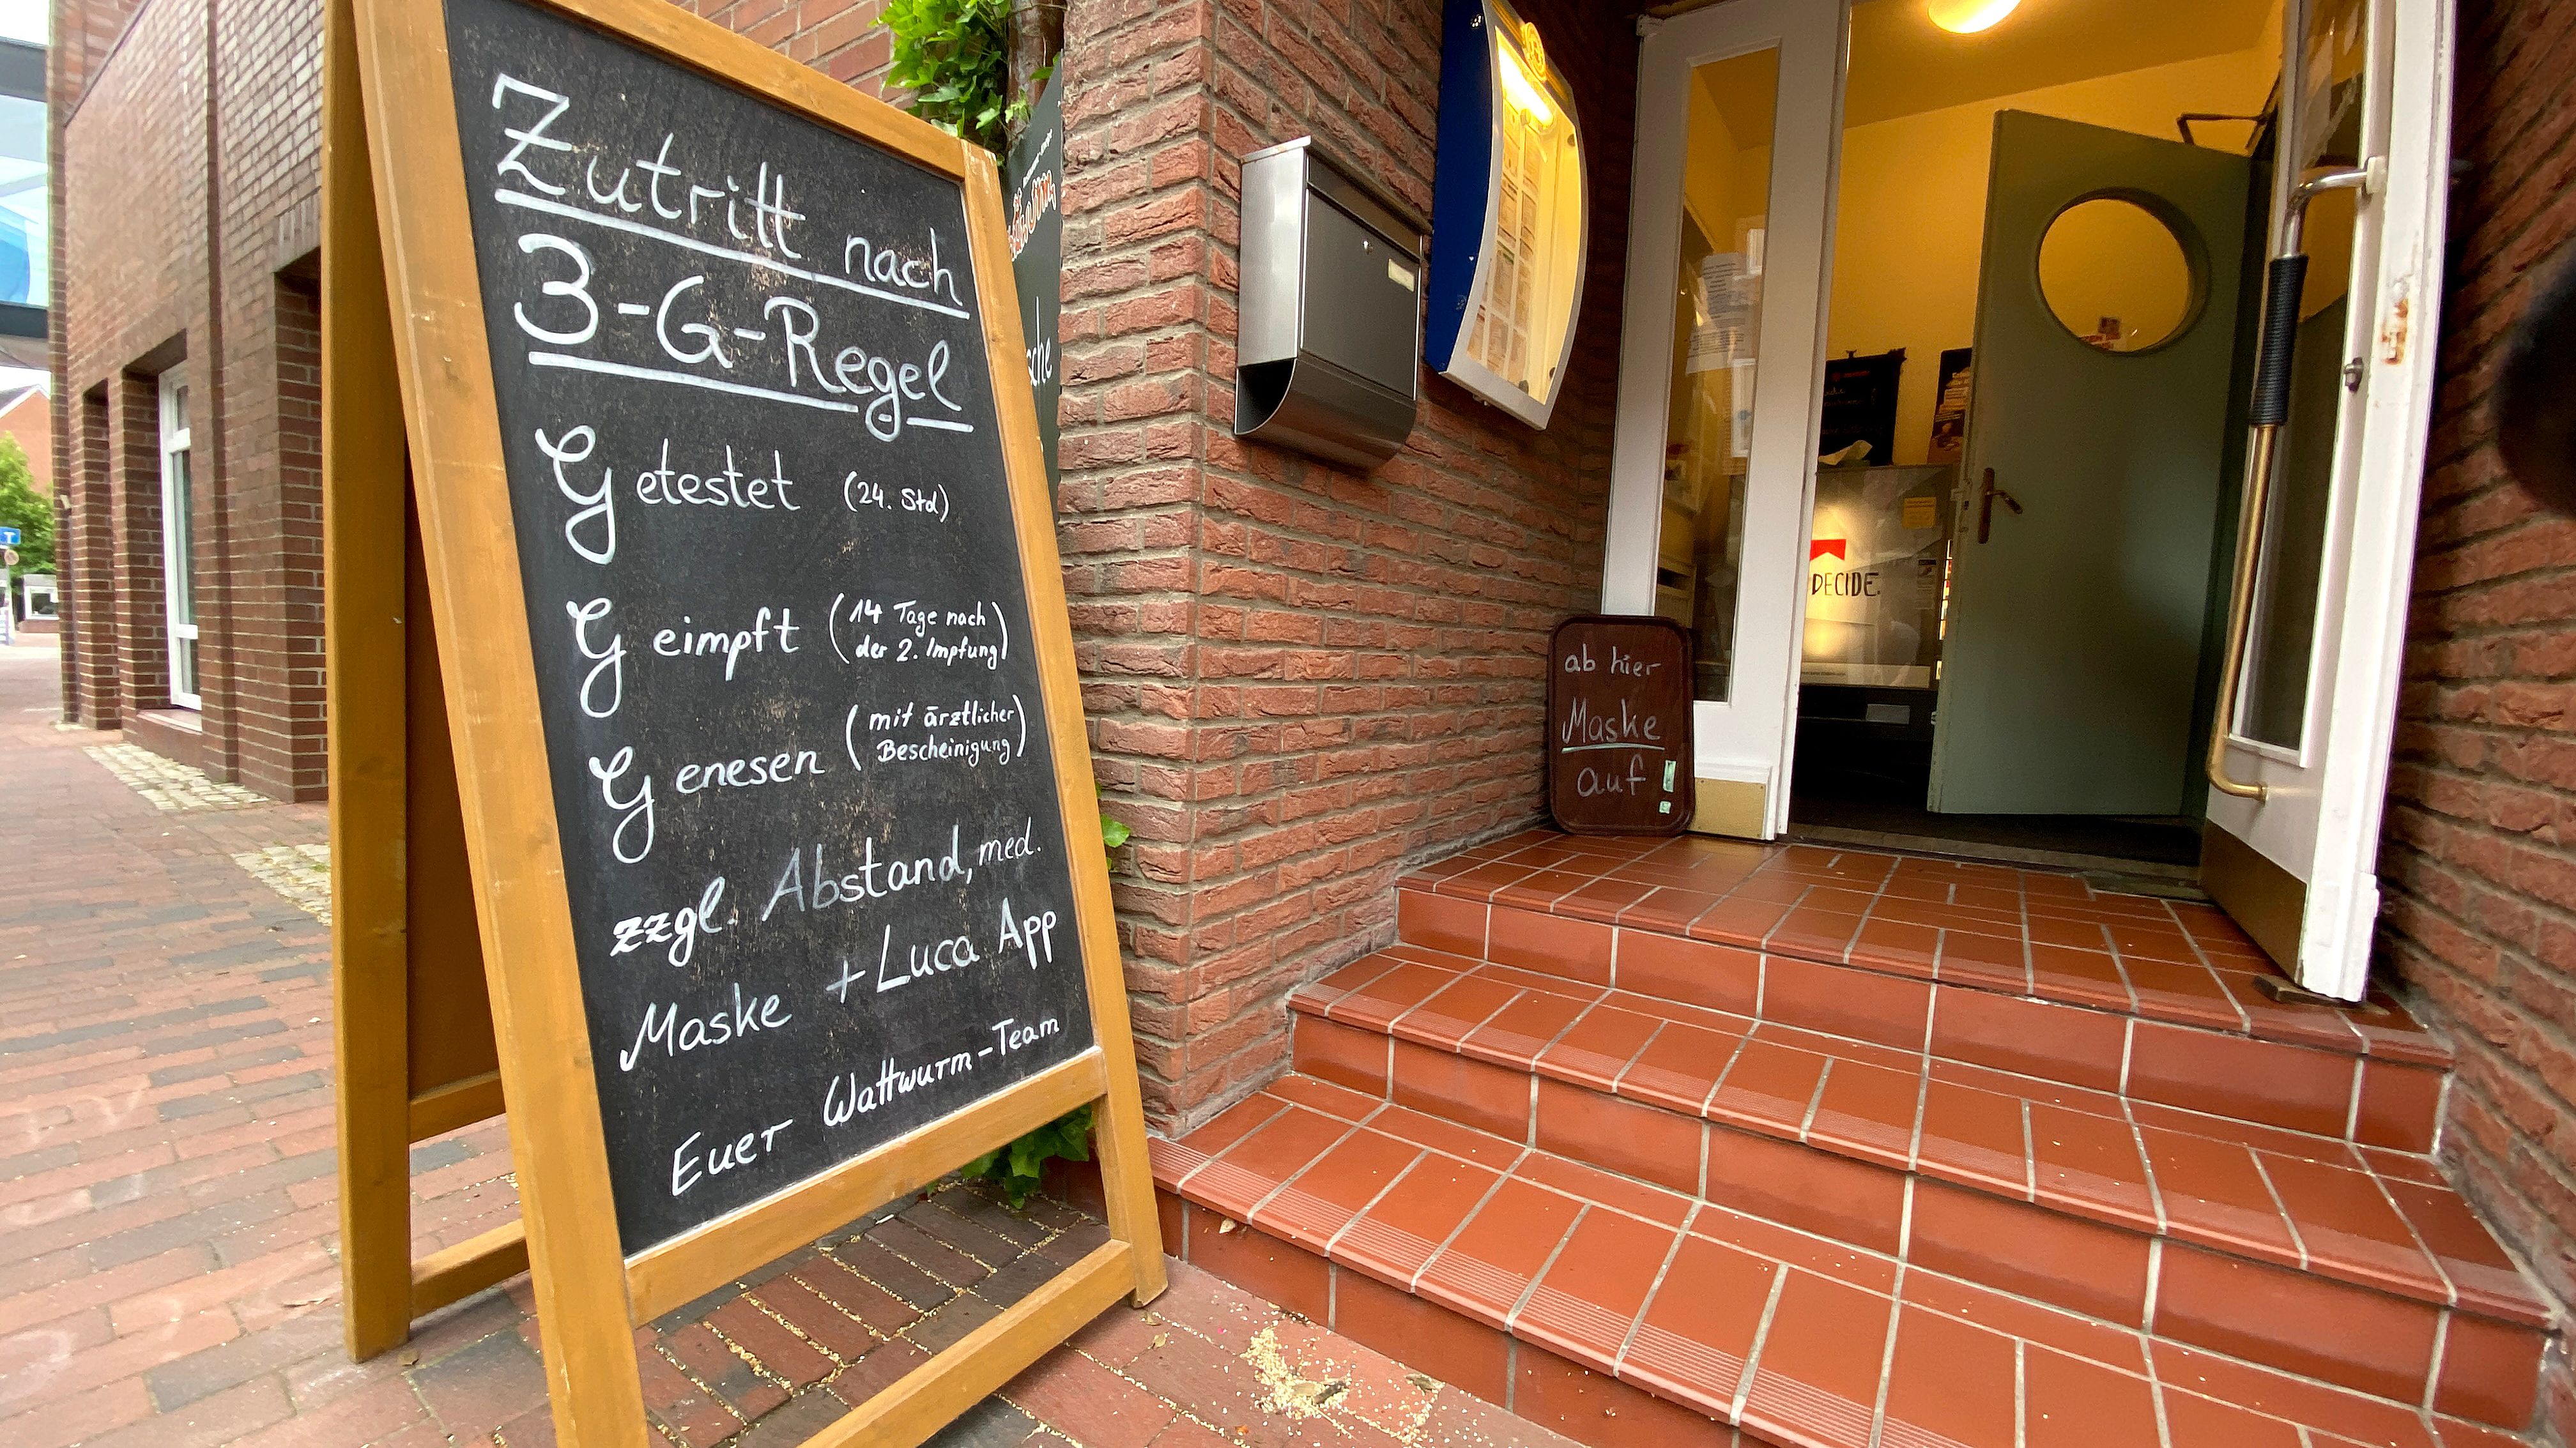 Zutritt nach
3-G-Regel
Getestet (24. Std)
Geimpft (14 Tage nach
der 2. Impfung)
Genesen (mit ärztlicher
Bescheinigung)
zzgl. Abstand, med.
Maske + Luca App
Euer Wattwurm-Team
ab hier
Maske
auf!
DECIDE.